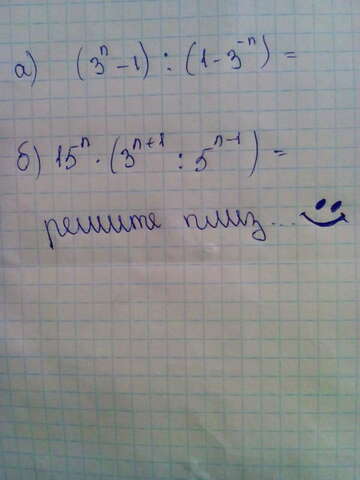 а) (3ⁿ-1) : (1-3⁻ⁿ) =
б) 15ⁿ · (3ⁿ⁺¹ : 5ⁿ⁻¹) =
решите плиз...